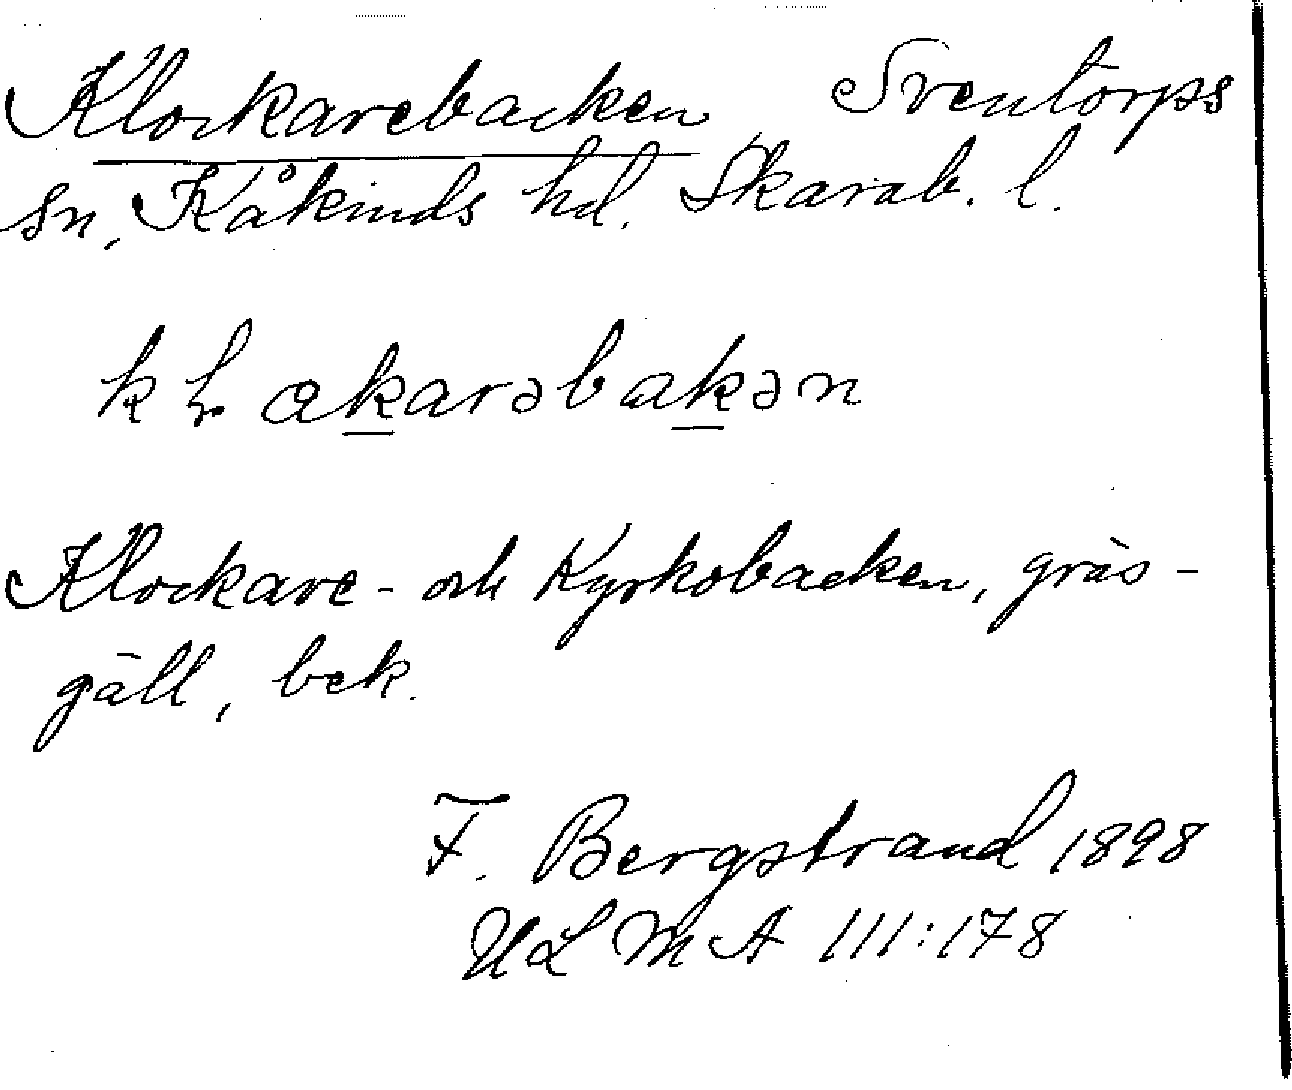 Klockarebacken Sventorps
sn, Kåkinds hd. Skarab. l.
kɫαkarəbakən
Klockare- och Kyrkobacken, gräs-
gäll, bek.
F. Bergstrand 1898
ULMA 111:178